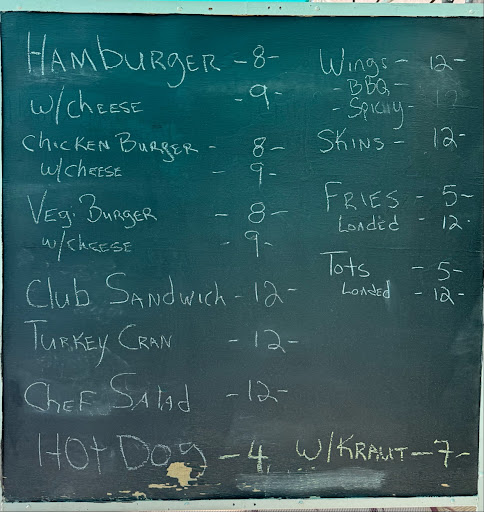 HAMBURGER - 8-
w/cheese - 9-
CHICKEN BURGER - 8-
w/CHEESE - 9-
VEG. BURGER - 8-
w/CHEESE - 9-
Club SANDWICH - 12-
TURKEY CRAN - 12-
CHEF SALAD - 12-
HOT DOG - 4 W/KRAUT - 7-
WINGS - 12-
- BBQ -
- Spicy - 12
SKINS - 12-
FRIES - 5-
LOADED - 12-
TOTS - 5-
LOADED - 12-